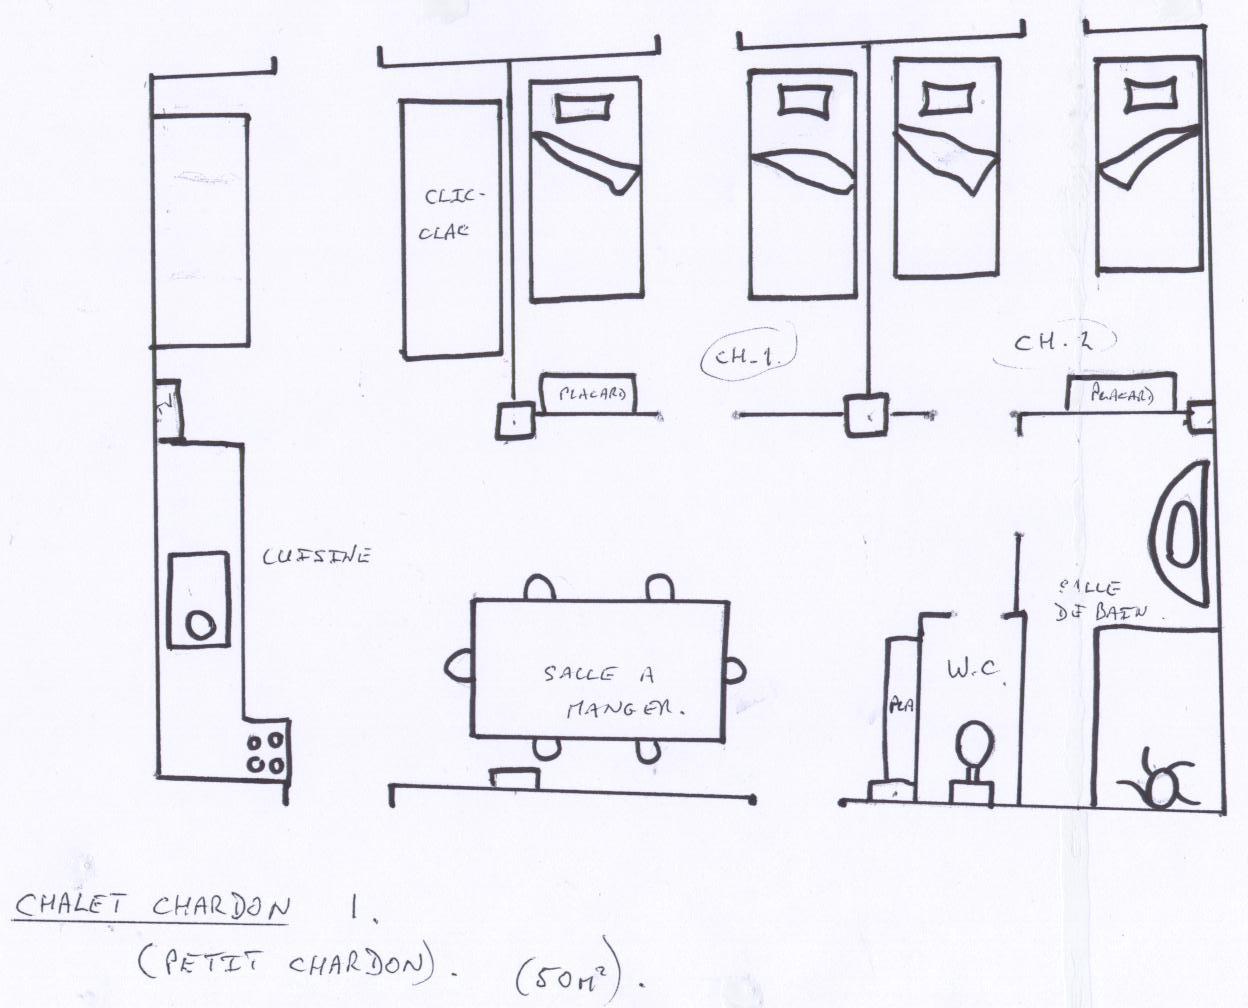 CLIC-
CLAC
PLACARD
CH-1.
CH.2
PLACARD
CUISINE
SALLE
DE BAIN.
SALLE A
MANGER.
W.C.
PLA
CHALET CHARDON 1.
(PETIT CHARDON).
(50M²).